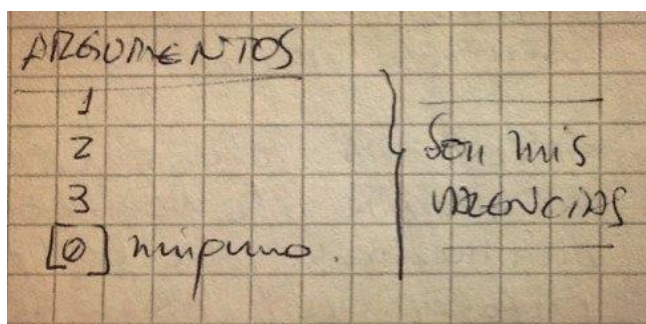 ARGUMENTOS
1
2
3
[0] ninguno.
Son mis
VALENCIAS